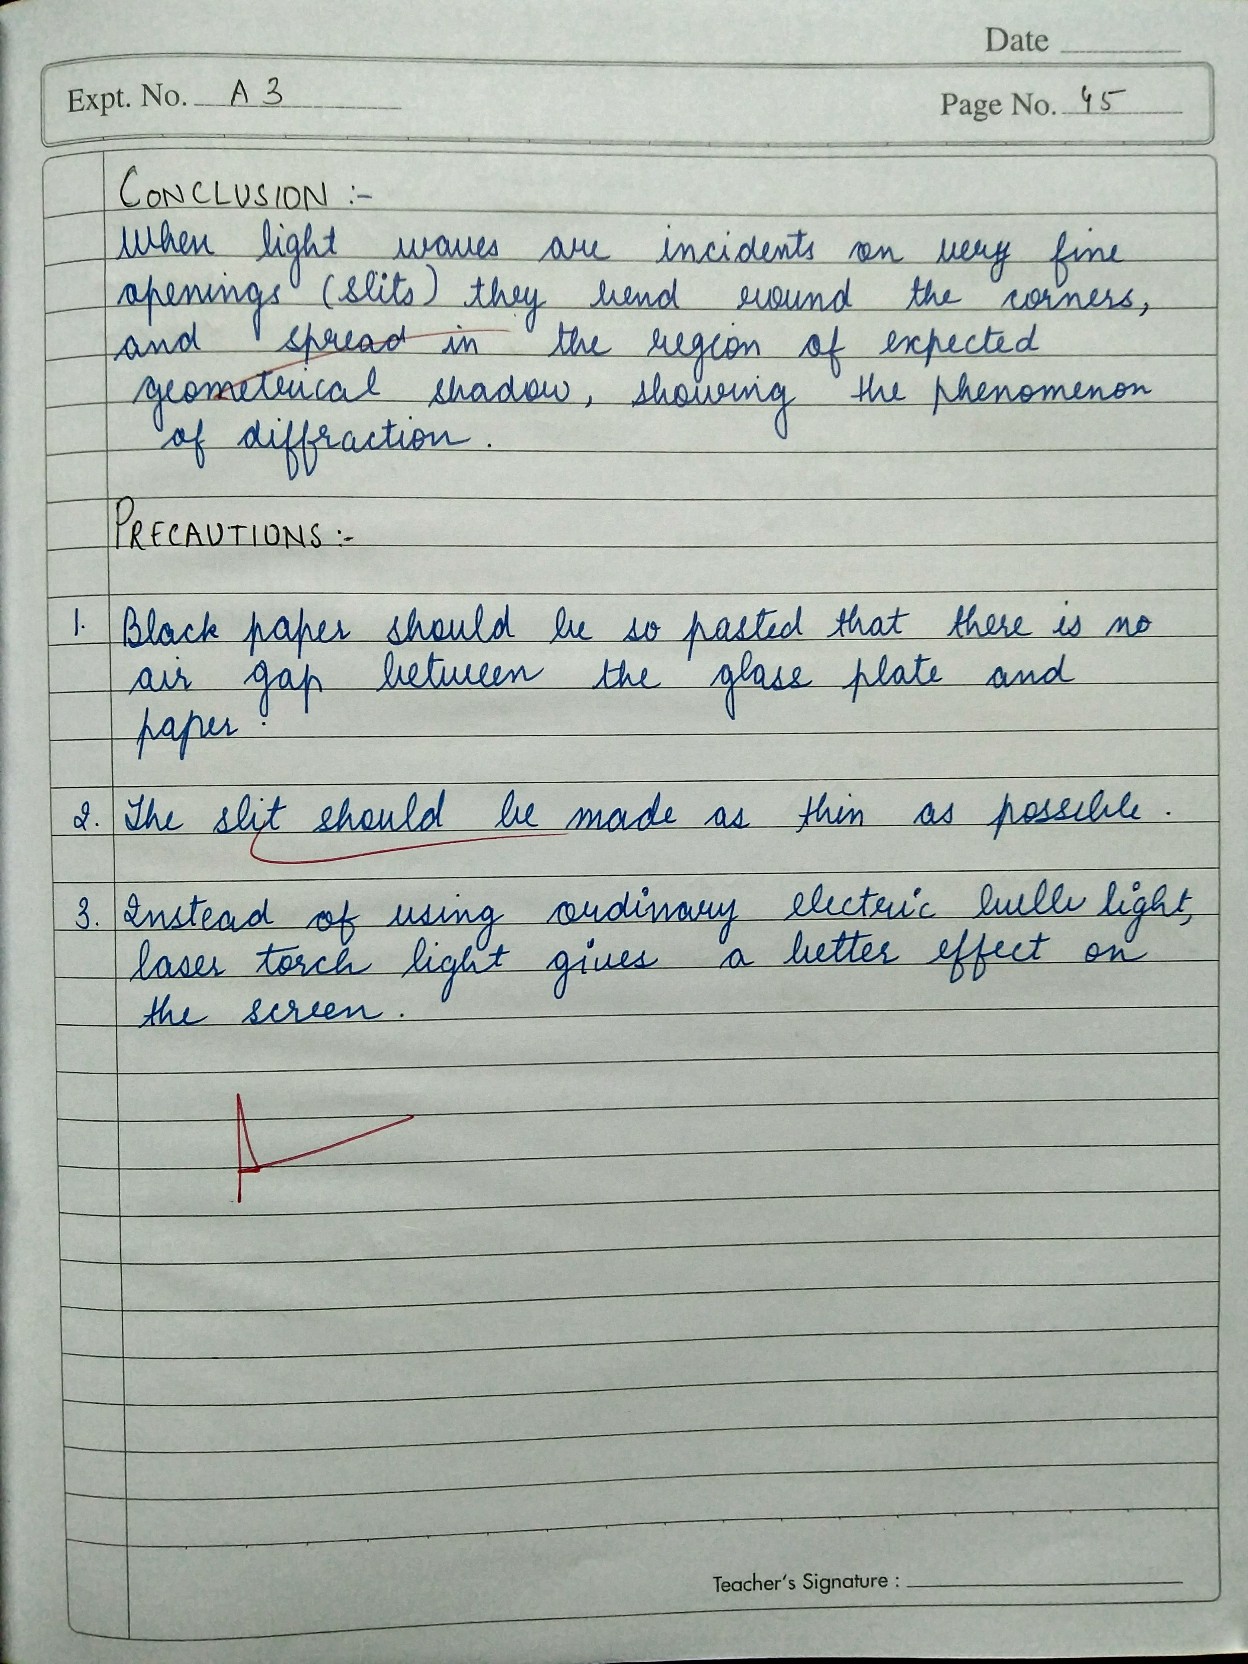 Date
Expt. No. A 3
Page No. 45
CONCLUSION :-
When light waves are incidents on very fine
openings (slits) they bend round the corners,
and spread in the region of expected
geometrical shadow, showing the phenomenon
of diffraction.
PRECAUTIONS :-
1. Black paper should be so pasted that there is no
air gap between the glass plate and
paper.
2. The slit should be made as thin as possible.
3. Instead of using ordinary electric bulb light,
laser torch light gives a better effect on
the screen.
Teacher's Signature :